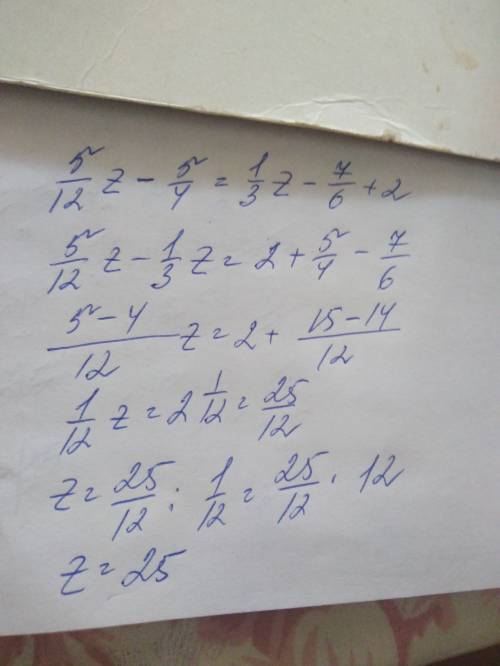 5/12 z - 5/4 = 1/3 z - 7/6 + 2
5/12 z - 1/3 z = 2 + 5/4 - 7/6
(5-4)/12 z = 2 + (15-14)/12
1/12 z = 2 1/12 = 25/12
z = 25/12 : 1/12 = 25/12 · 12
z = 25